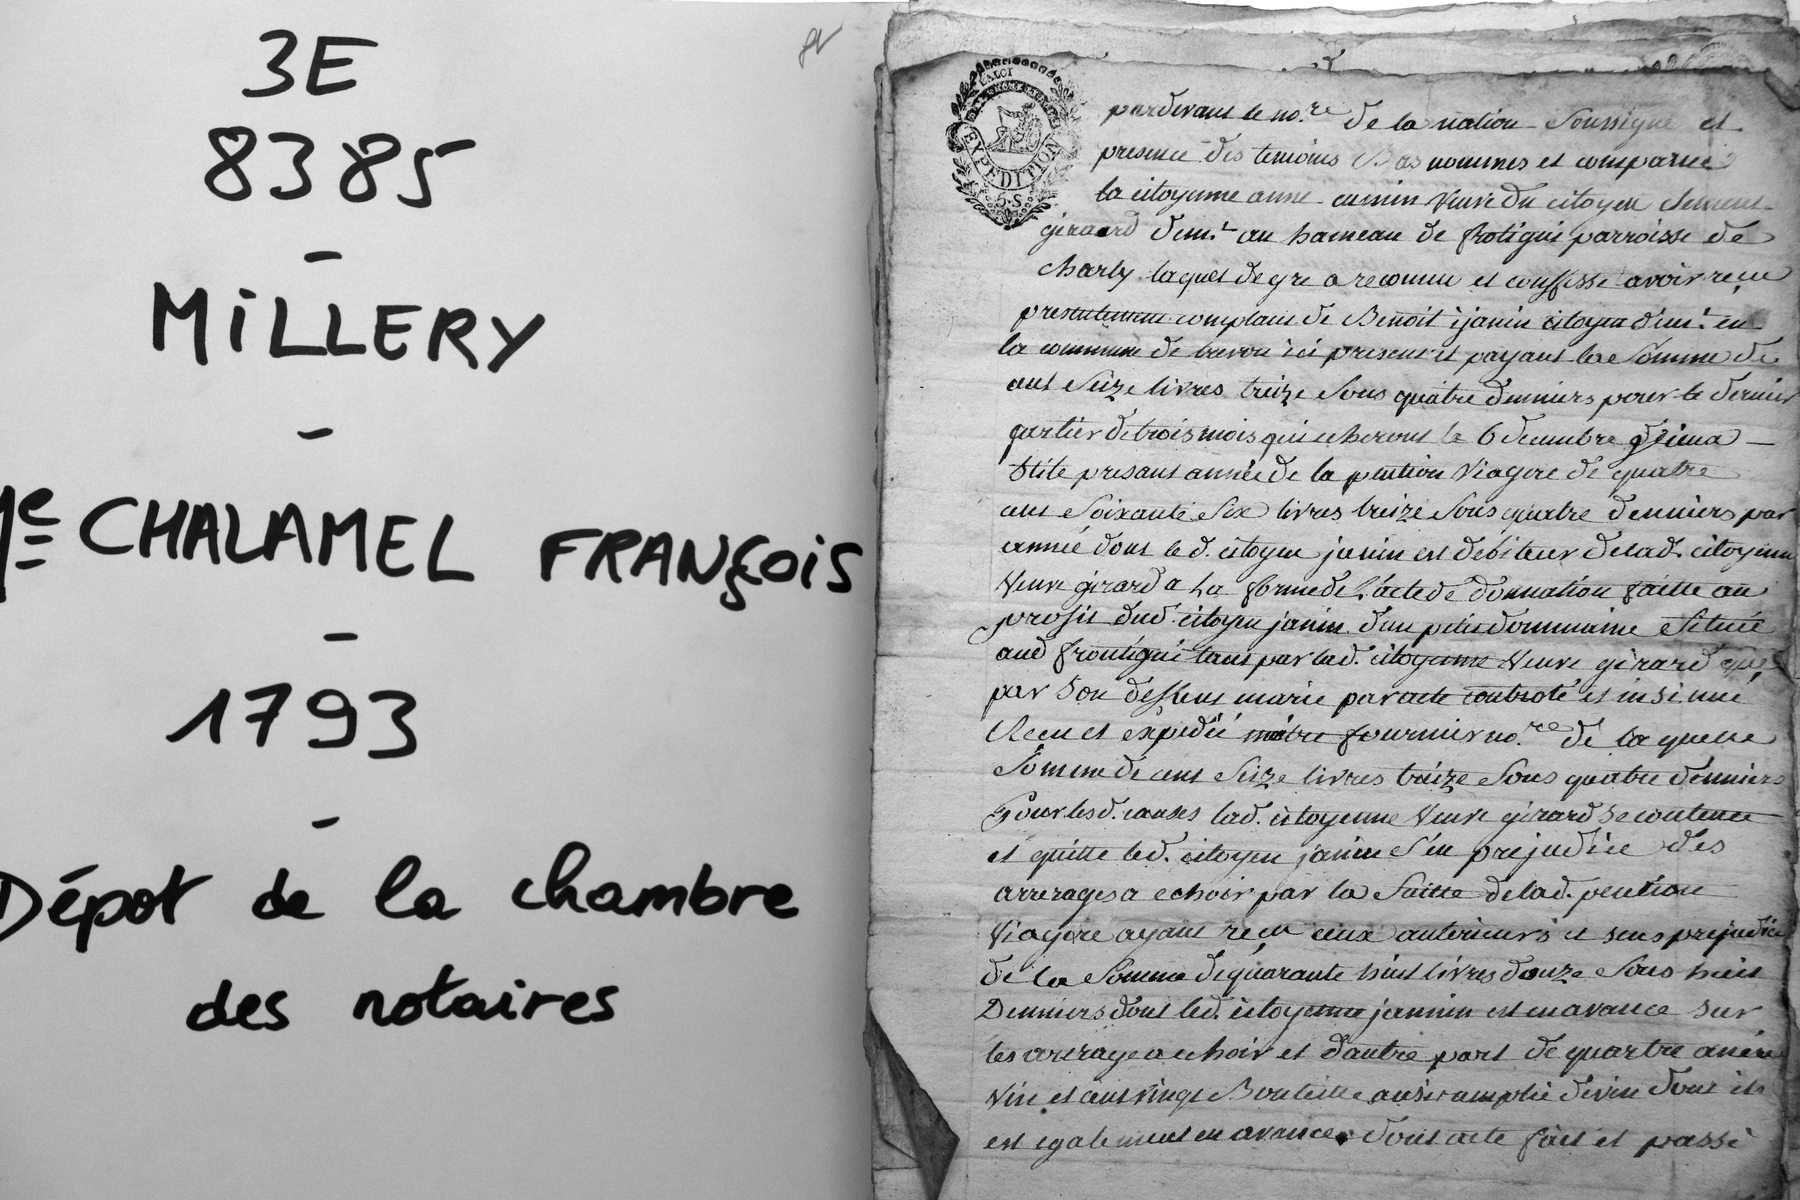 3E
8385
-
MiLLERY
-
Me CHALAMEL FRANÇOIS
-
1793
-
Dépot de la chambre
des notaires
EXPEDITION
5.S
pardevant le no.re de la nation Soussigné et
presence des temoins Bas nommes et comparue
la citoyenne anne veuve du citoyen
girard dem.t au hameau de frotigni parroisse de
charly laquel de gre a reconnu et confesse avoir recu
presentement comptant de Benoit janin citoyen dem.t en
la commune de ici present et payant la Somme de
cent Seize livres treize Sous quatre denniers pour le dernier
qartier de trois mois qui echeront le 6 decembre
Stile presant année de la pention Viagere de quatre
cent Soixante Six livres treize Sous quatre denniers par
année dont le d. citoyen janin est debiteur de lad. citoyenne
Veuve girard a la forme de l'acte de donnation faitte au
profit dud. citoyen janin d'un petit dommaine Situé
aud frontigni tant par lad. citoyenne Veuve girard que
par Son deffent marie par acte controlé et insinué
Recu et expedié maitre fournier no.re de la quelle
Somme de cent Seize livres treize Sous quatre denniers
Pour les d. causes lad. citoyenne Veuve girard se contente
et quitte led. citoyen janin S'en prejudice des
arrerages a echoir par la Suitte de lad. pention
Viagere ayant reçu ceux anterieurs et sens prejudice
de la Somme de quarante huit livres douze Sous huit
Denniers dont led. citoyenne jannin est en avance sur
les arerage a echoir et d'autre part de quartre anée
Vin et cent vingt Bouteille de vin dont il
est egalement en avance dont acte fait et passé